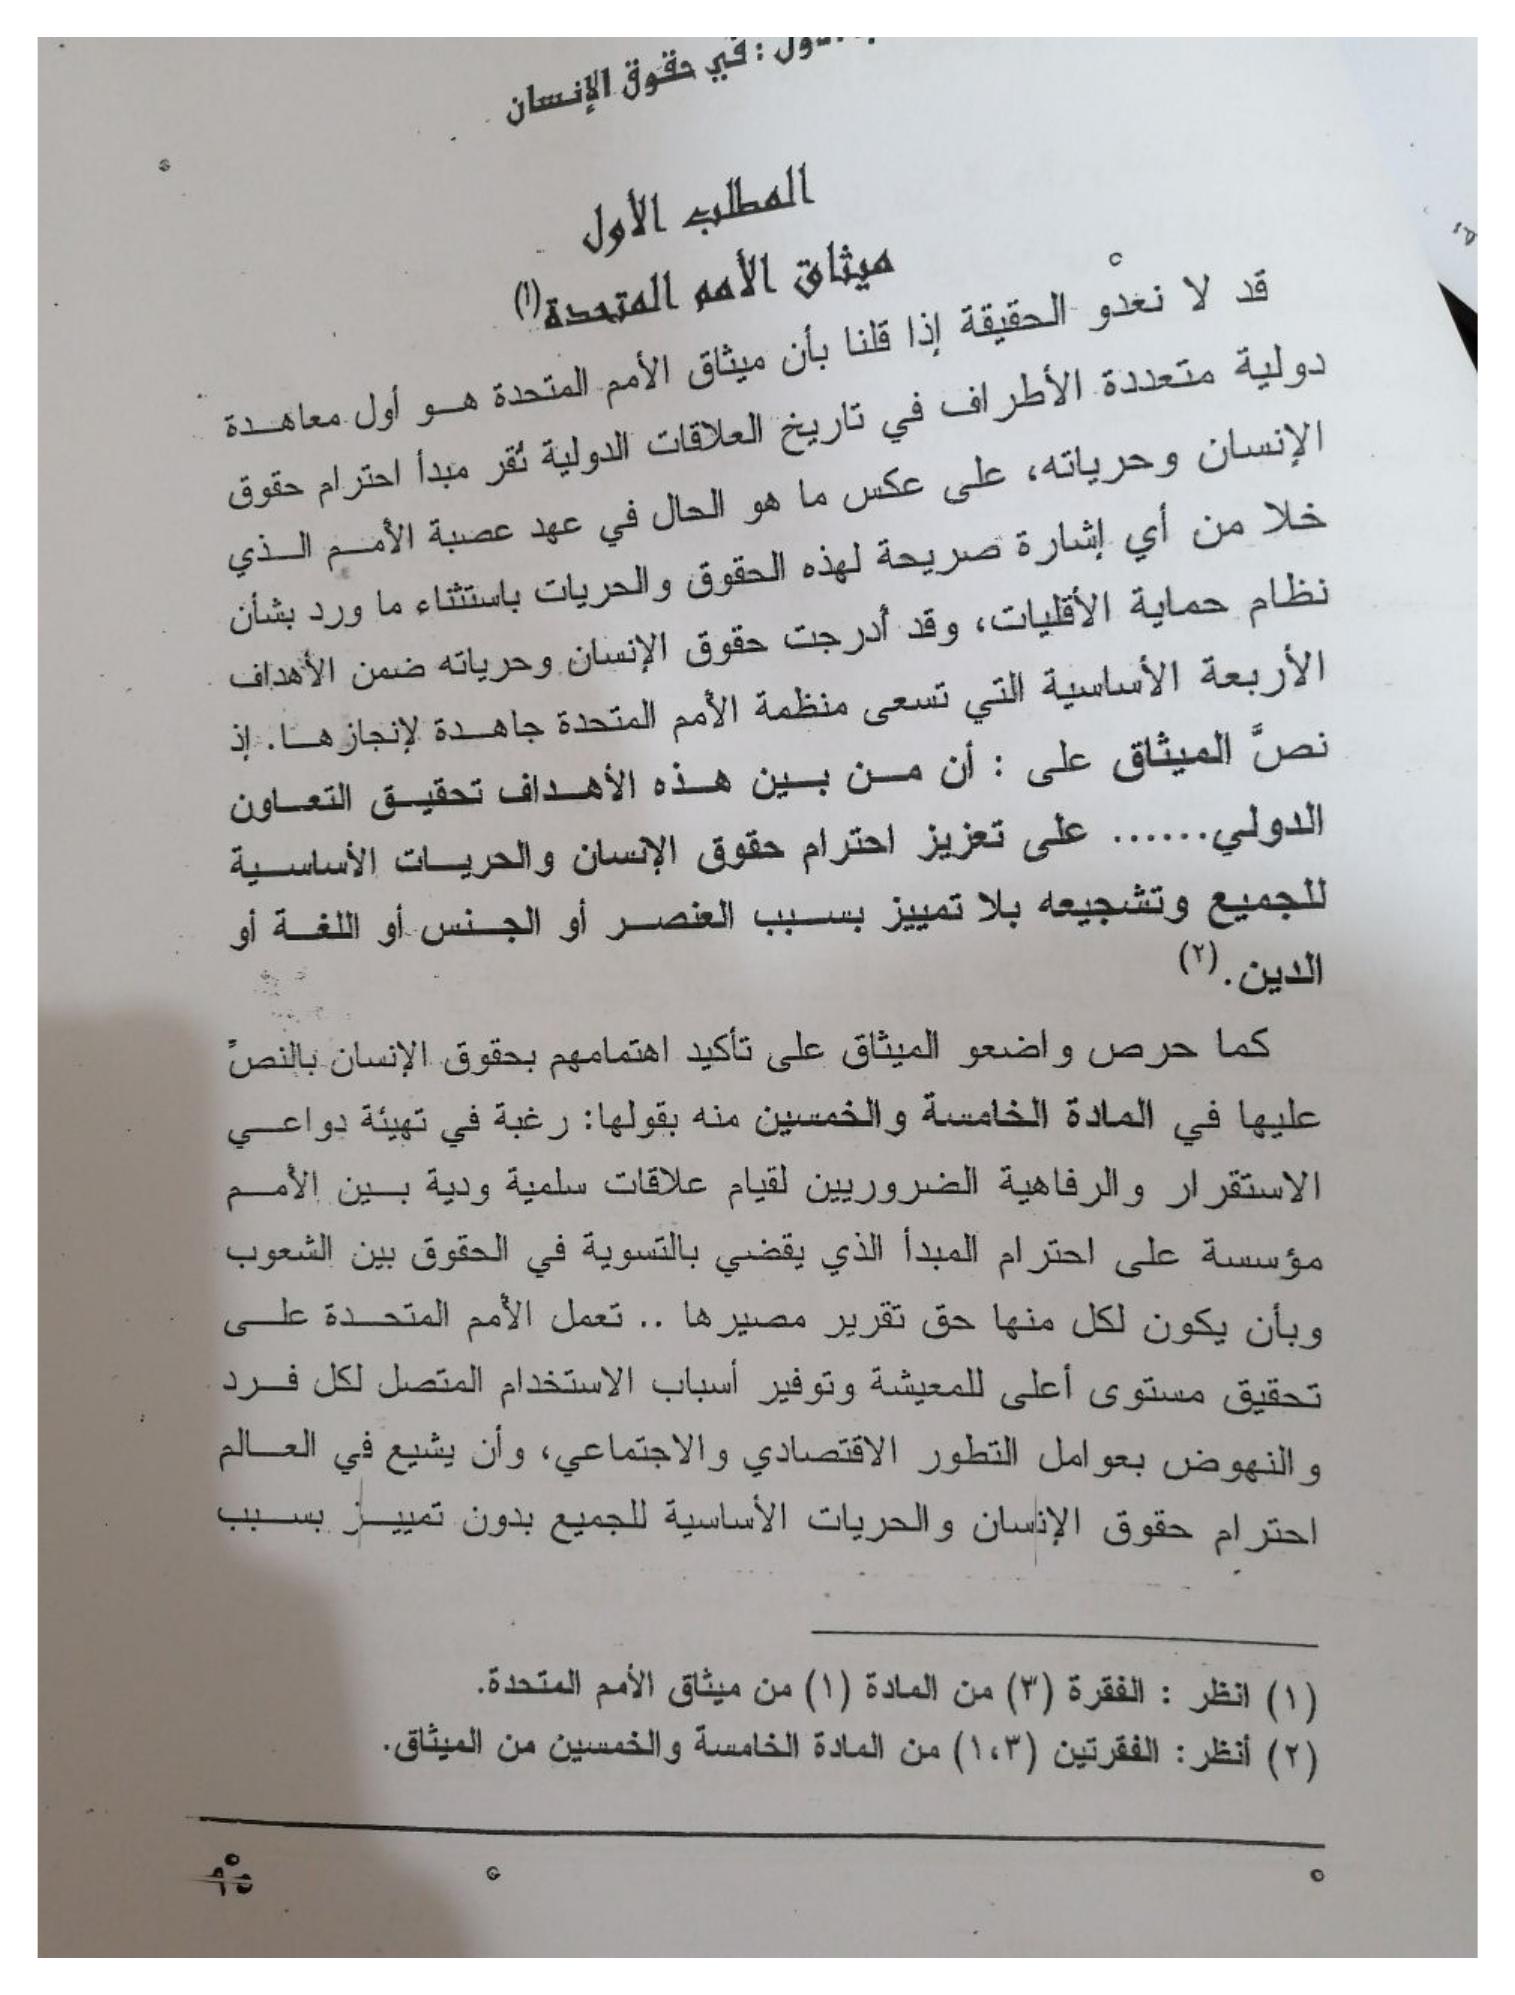 الأول : في حقوق الإنسان
المطلب الأول
ميثاق الأمم المتحدة(١)
قد لا نعدو الحقيقة إذا قلنا بأن ميثاق الأمم المتحدة هو أول معاهدة
دولية متعددة الأطراف في تاريخ العلاقات الدولية تُقر مبدأ احترام حقوق
الإنسان وحرياته، على عكس ما هو الحال في عهد عصبة الأمم الذي
خلا من أي إشارة صريحة لهذه الحقوق والحريات باستثناء ما ورد بشأن
نظام حماية الأقليات، وقد أُدرجت حقوق الإنسان وحرياته ضمن الأهداف
الأربعة الأساسية التي تسعى منظمة الأمم المتحدة جاهدة لإنجازها. إذ
نصَّ الميثاق على : أن من بين هذه الأهداف تحقيق التعاون
الدولي...... على تعزيز احترام حقوق الإنسان والحريات الأساسية
للجميع وتشجيعه بلا تمييز بسبب العنصر أو الجنس أو اللغة أو
الدين.(٢)
كما حرص واضعو الميثاق على تأكيد اهتمامهم بحقوق الإنسان بالنصِّ
عليها في المادة الخامسة والخمسين منه بقولها: رغبة في تهيئة دواعي
الاستقرار والرفاهية الضروريين لقيام علاقات سلمية ودية بين الأمم
مؤسسة على احترام المبدأ الذي يقضي بالتسوية في الحقوق بين الشعوب
وبأن يكون لكل منها حق تقرير مصيرها .. تعمل الأمم المتحدة على
تحقيق مستوى أعلى للمعيشة وتوفير أسباب الاستخدام المتصل لكل فرد
والنهوض بعوامل التطور الاقتصادي والاجتماعي، وأن يشيع في العالم
احترام حقوق الإنسان والحريات الأساسية للجميع بدون تمييز بسبب
(١) انظر : الفقرة (٣) من المادة (١) من ميثاق الأمم المتحدة.
(٢) أنظر: الفقرتين (١،٣) من المادة الخامسة والخمسين من الميثاق.